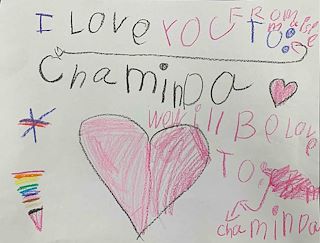 I LOVE YOU TOO
FROM
ChaminDa
will Be love
TO
chaminDa